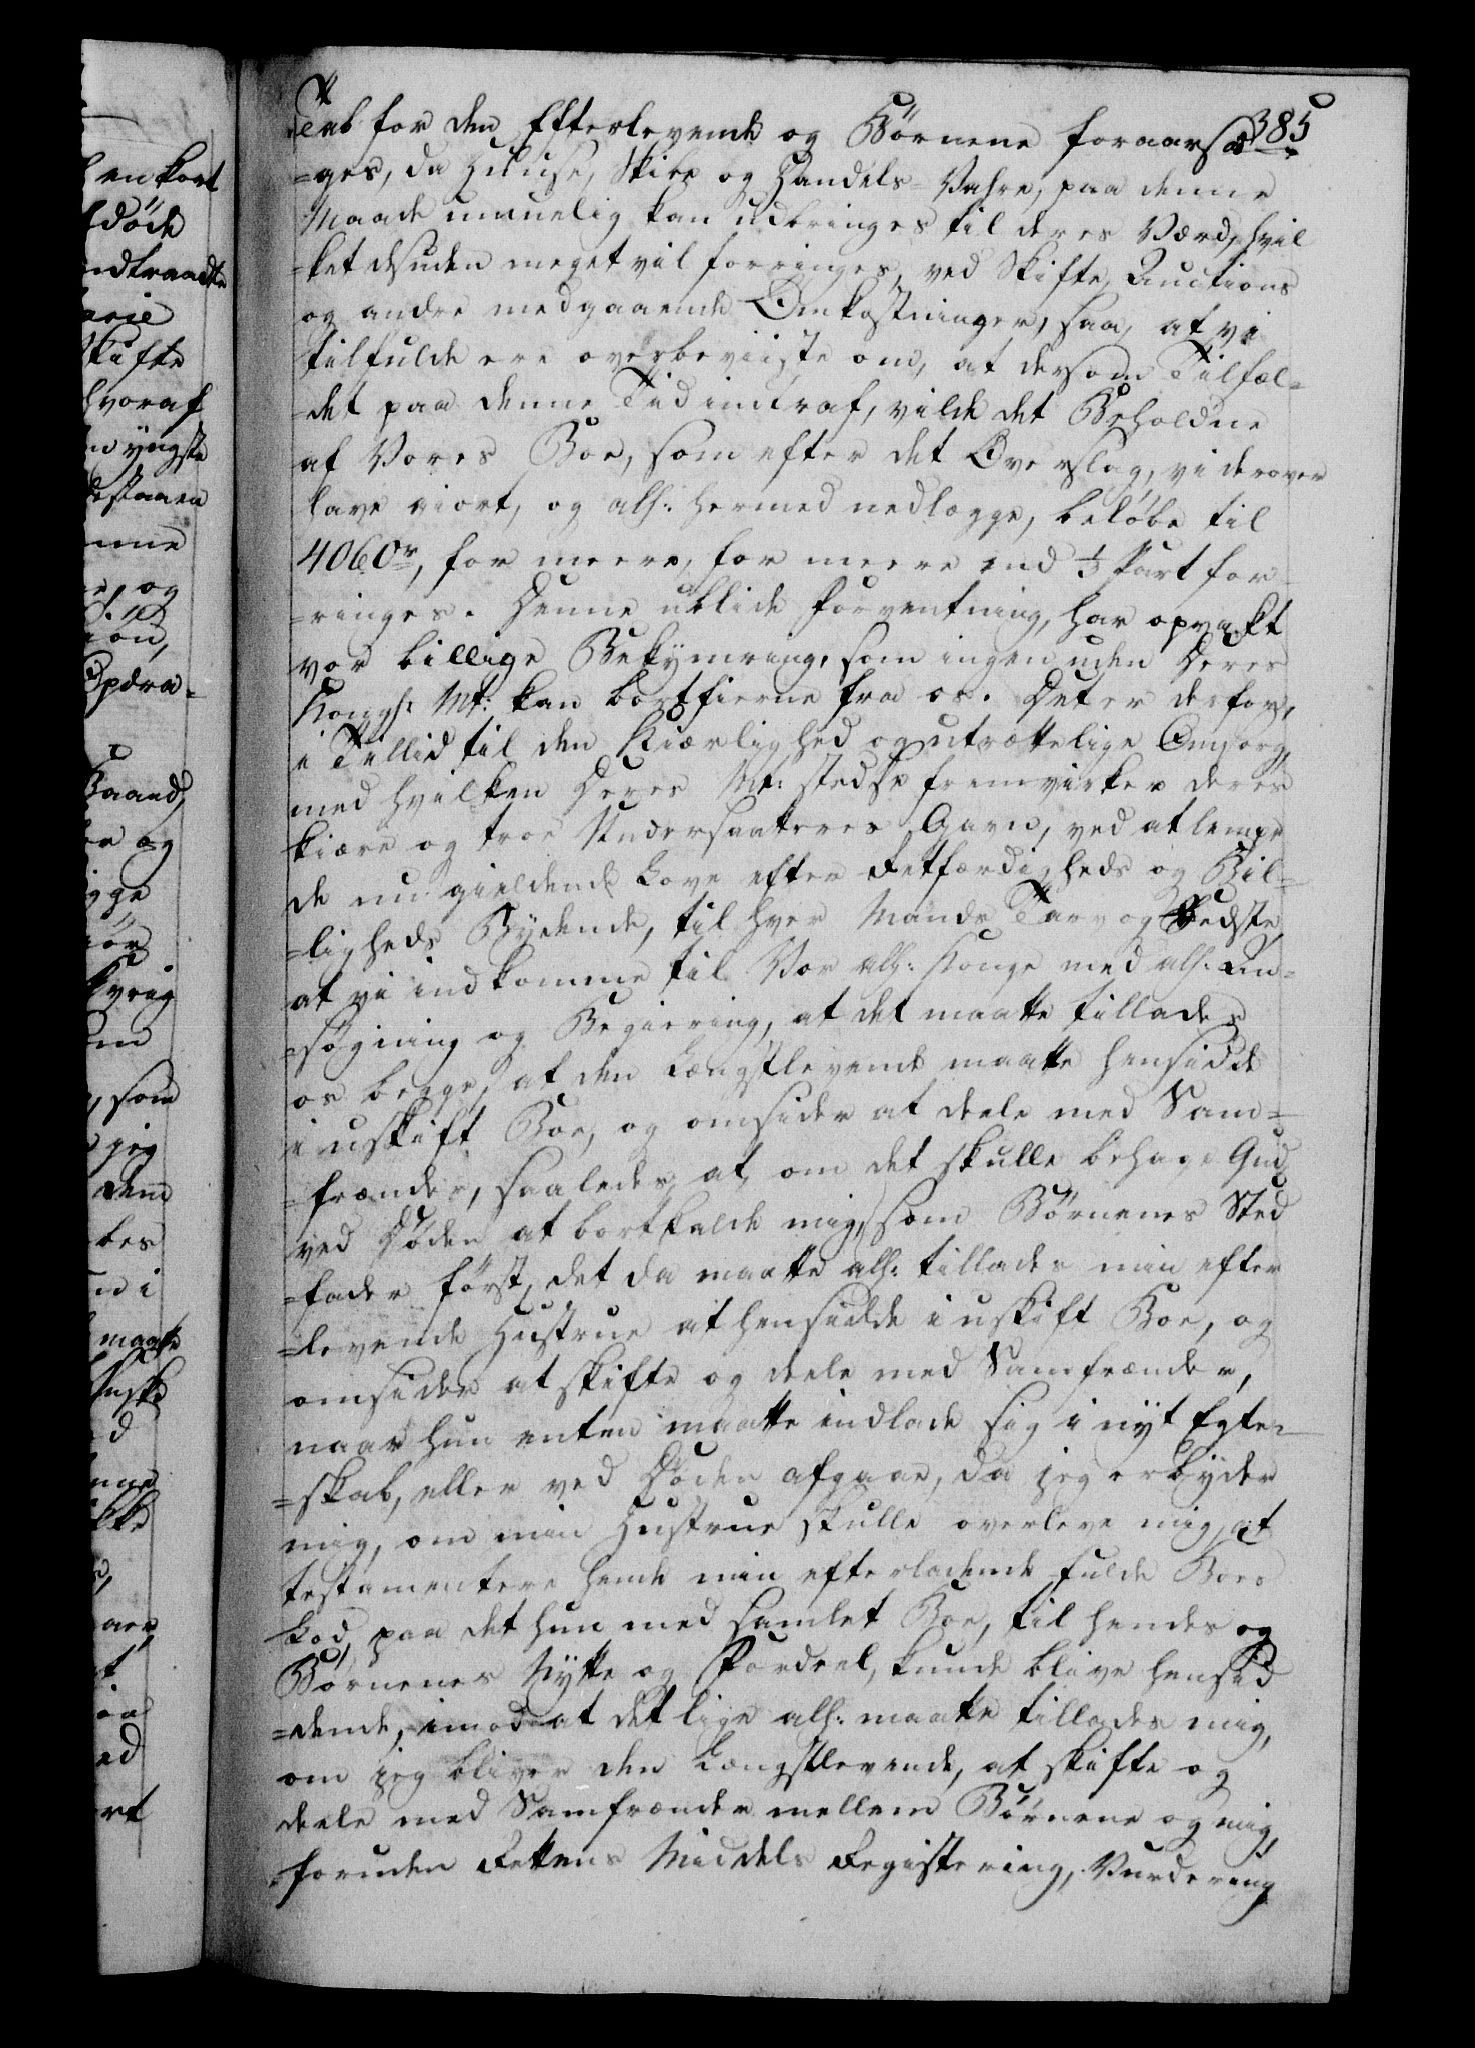 385
Tab for den Efterlevende og Börnene foraarsa-
=ges, da Huuse, Skibe og Handels-Vahre, paa denne
Maade umuelig kan udbringes til deres Værd, hvil
=ket desuden meget vil forringes, ved Skifte, Auctions
og andre medgaaende Omkostninger, saa, at vi
tilfulde ere overbeviiste om, at dersom Tilfæl=
=det paa denne Tid indtraf, vilde det Beholdne
af Vores Boe, som efter det Overslag, vi derover
have giort, og alh: hermed nedlegge, beløbe til
4060r, for meere, for meere end 1/3 Part for-
=ringes. Denne ublide Forventning, har opvakt
vor billige Bekymring, som ingen uden Deres
Kongl: Mt: kan bortfierne fra os. Det er derfor,
i Tillid til den Kiærlighed og utrættelige Omsorg,
med hvilken Deres Mt: stedse fremvirker deres
kiære og troe Undersaatteres Gavn, ved at lempe
de nu gieldende Love efter Retfærdigheds og Bil=
=ligheds Bydende, til hver Mands Tarv og Bedste,
at vi indkomme til Vor alh: Konge med alh: An=
=søgning og Begiering, at det maatte tillades
os begge, at den Længstlevende maatte hensidde
i uskift Boe, og omsider at deele med Sam=
=frænder, saaledes, at, om det skulle behage Gud
ved Döden at bortkalde mig, som Börnenes Sted
=fader först, det da maatte alh: tillades min efter
=levende Hustrue at hensidde i uskift Boe, og
omsider at skifte og deele med Samfrænder,
naar hun enten maatte indlade sig i nyt Egte-
=skab, eller ved Döden afgaae, da jeg erbyder
mig, om min Hustrue skulle overleve mig, at
testamentere hende min efterladende fulde Boes
Lod, paa det hun med samlet Boe, til hendes og
Börnenes Nytte og Fordeel, kunde blive hensid
=dende, imod at det lige alh: maatte tillades mig,
om jeg bliver den Længstlevende, at skifte og
deele med Samfrænder mellem Börnene og mig,
foruden Rettens Middels Registering, Vurdering